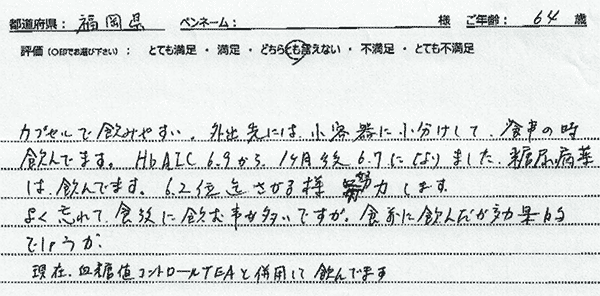 都道府県： 福岡県 ペンネーム： 様 ご年齢： 64 歳
評価（○印でお選び下さい）： とても満足 ・ 満足 ・ どちらとも言えない ・ 不満足 ・ とても不満足
カプセルで飲みやすい。外出先には、小容器に小分けして、食事の時
飲んでます。HbA1C 6.9から、1ヶ月後 6.7になりました。糖尿病薬
は、飲んでます。6.2位迄さがる様 努力します
よく忘れて、食後に飲む事が多いですが。食前に飲んだが効果的
でしょうか.
現在、血糖値コントロールTEAと併用して飲んでます